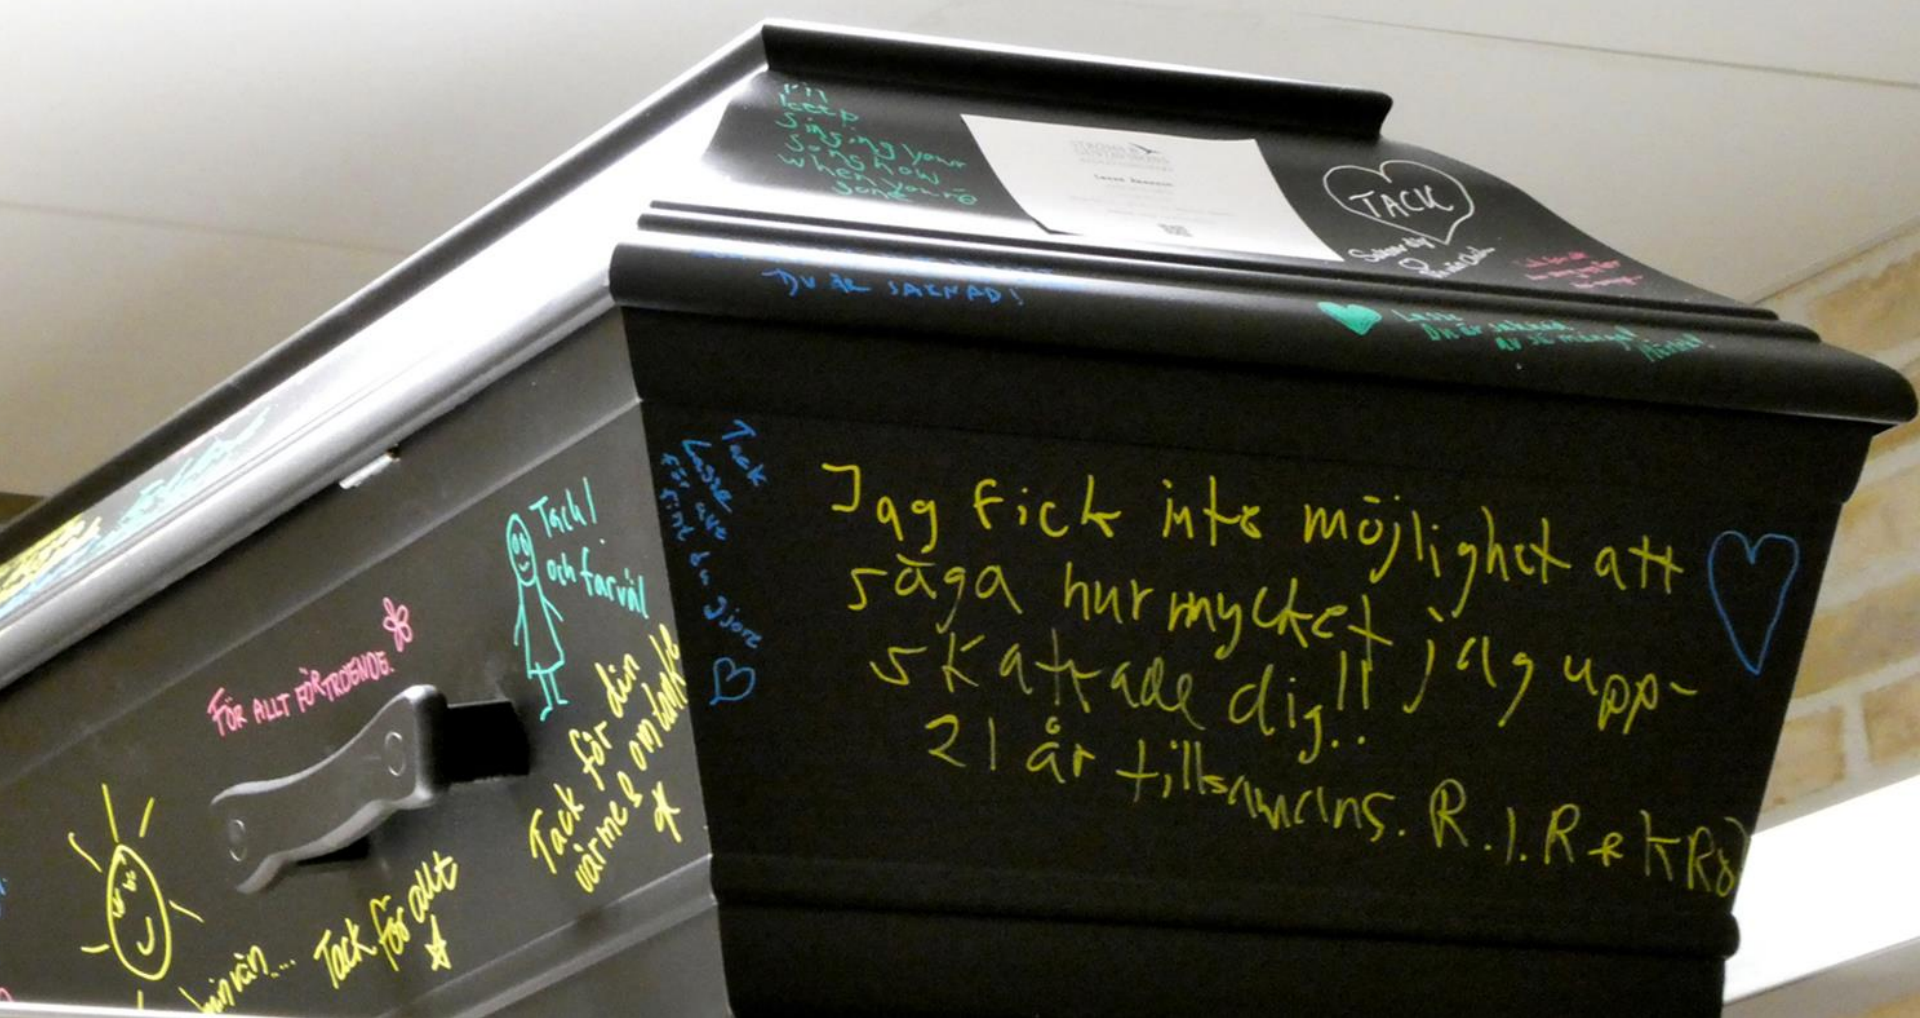 I'll
keep
singing your
song now
when you're
gone
TACK
DU ÄR SAKNAD!
Lasse
Du är saknad
av så många!
Tack
Lasse
för allt
fint du gjort
Jag fick inte möjlighet att
säga hur mycket jag upp-
skattade dig!!
21 år tillsammans. R.I.P
Tack!
och farväl
FÖR ALLT FÖRTROENDE.
Tack för din
värme & omtanke
Tack för allt
min vän...